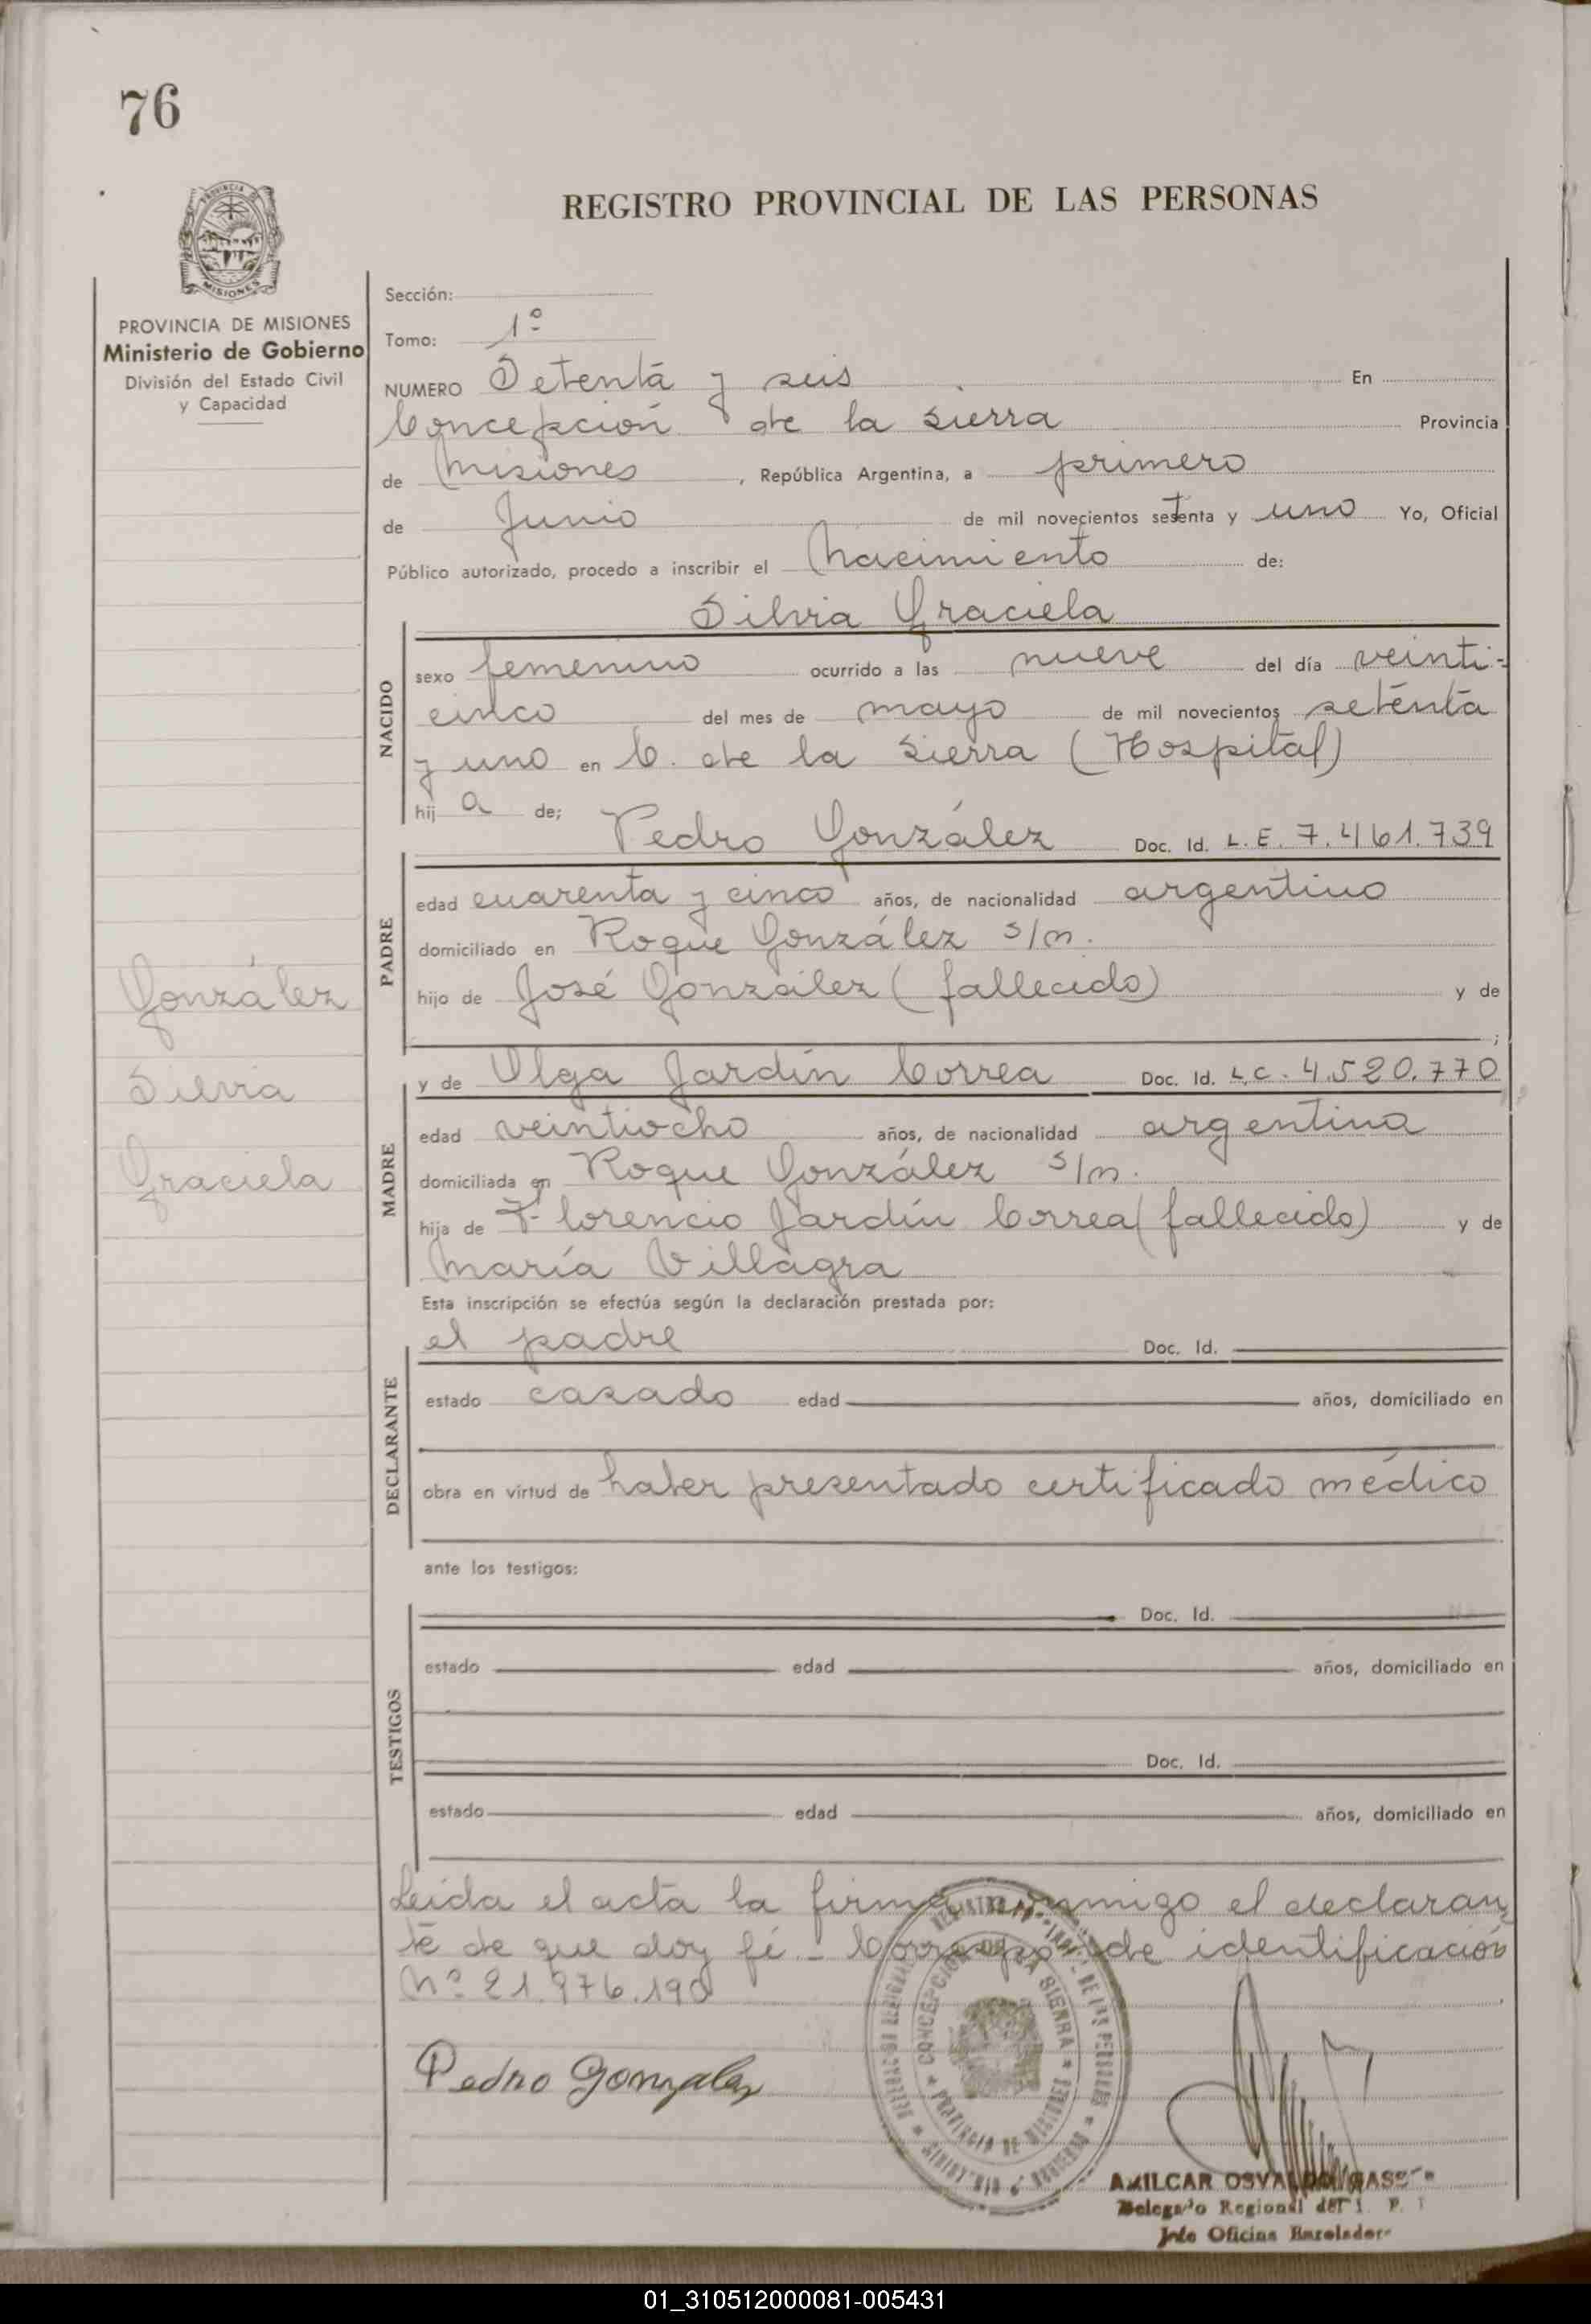 76
REGISTRO PROVINCIAL DE LAS PERSONAS
PROVINCIA DE MISIONES
Ministerio de Gobierno
División del Estado Civil
y Capacidad
González
Silvia
Graciela
Sección:
Tomo: 1º
NUMERO Setenta y seis En
Concepción de la Sierra Provincia
de Misiones, República Argentina, a primero
de Junio de mil novecientos setenta y uno Yo, Oficial
Público autorizado, procedo a inscribir el Nacimiento de:
Silvia Graciela
NACIDO
sexo femenino ocurrido a las nueve del día veinti-
cinco del mes de mayo de mil novecientos setenta
y uno en C. de la Sierra (Hospital)
hij a de;
Pedro González Doc. Id. L.E. 7.461.739
PADRE
edad cuarenta y cinco años, de nacionalidad argentino
domiciliado en Roque González s/n.
hijo de José González (fallecido) y de
;
y de Olga Jardín Correa Doc. Id. L.C. 4.520.770
MADRE
edad veintiocho años, de nacionalidad argentina
domiciliada en Roque González s/n.
hija de Florencio Jardín Correa (fallecido) y de
María Villagra
Esta inscripción se efectúa según la declaración prestada por:
el padre Doc. Id.
DECLARANTE
estado casado edad años, domiciliado en
obra en virtud de haber presentado certificado médico
ante los testigos:
TESTIGOS
Doc. Id.
estado edad años, domiciliado en
Doc. Id.
estado edad años, domiciliado en
Leída el acta la firma conmigo el declaran
te de que doy fé - Corresponde identificación
Nº 21.976.190
Pedro Gonzalez
CONCEPCION DE LA SIERRA * PROVINCIA DE MISIONES *
AMILCAR OSVALDO
Delegado Regional del
Jefe Oficina Enroladora
01_310512000081-005431